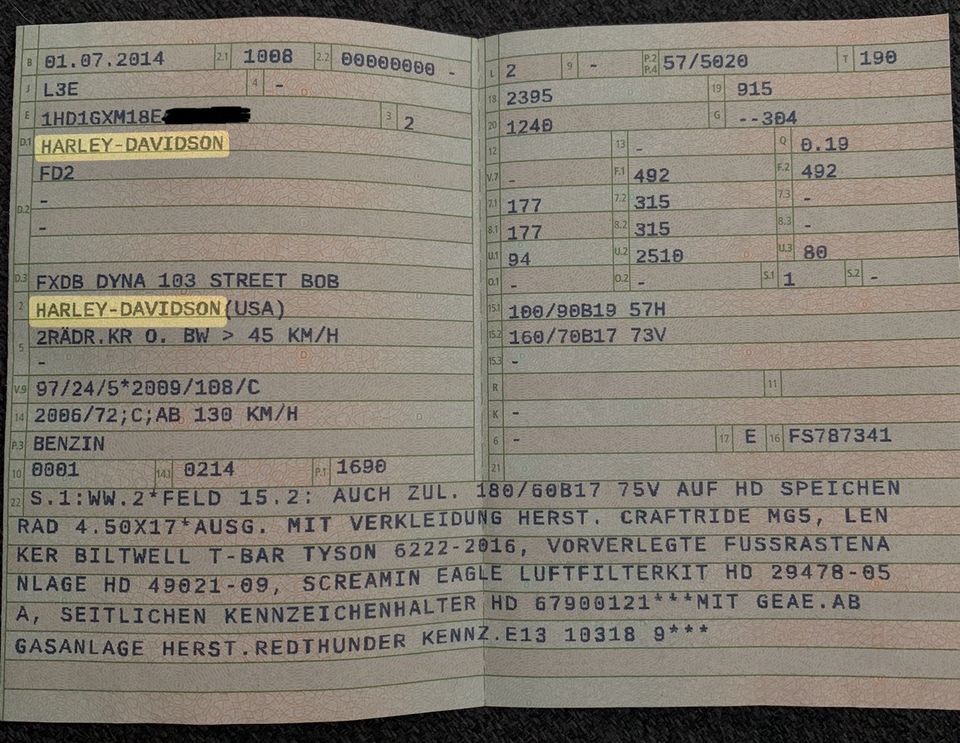 B 01.07.2014 2.1 1008 2.2 00000000 -
J L3E 4 -
E 1HD1GXM18E 3 2
D.1 HARLEY-DAVIDSON
FD2
D.2 -
-
D.3 FXDB DYNA 103 STREET BOB
2 HARLEY-DAVIDSON(USA)
5 2RÄDR.KR O. BW > 45 KM/H
-
V.9 97/24/5*2009/108/C
14 2006/72;C;AB 130 KM/H
P.3 BENZIN
10 0001 14.1 0214 P.1 1690
L 2 9 - P.2 P.4 57/5020 T 190
18 2395 19 915
20 1240 G --304
12 13 - Q 0.19
V.7 - F.1 492 F.2 492
7.1 177 7.2 315 7.3 -
8.1 177 8.2 315 8.3 -
U.1 94 U.2 2510 U.3 80
O.1 - O.2 - S.1 1 S.2 -
15.1 100/90B19 57H
15.2 160/70B17 73V
15.3 -
R 11
K -
6 - 17 E 16 FS787341
21
22 S.1:WW.2*FELD 15.2: AUCH ZUL. 180/60B17 75V AUF HD SPEICHEN
RAD 4.50X17*AUSG. MIT VERKLEIDUNG HERST. CRAFTRIDE MG5, LEN
KER BILTWELL T-BAR TYSON 6222-2016, VORVERLEGTE FUSSRASTENA
NLAGE HD 49021-09, SCREAMIN EAGLE LUFTFILTERKIT HD 29478-05
A, SEITLICHEN KENNZEICHENHALTER HD 67900121***MIT GEAE.AB
GASANLAGE HERST.REDTHUNDER KENNZ.E13 10318 9***